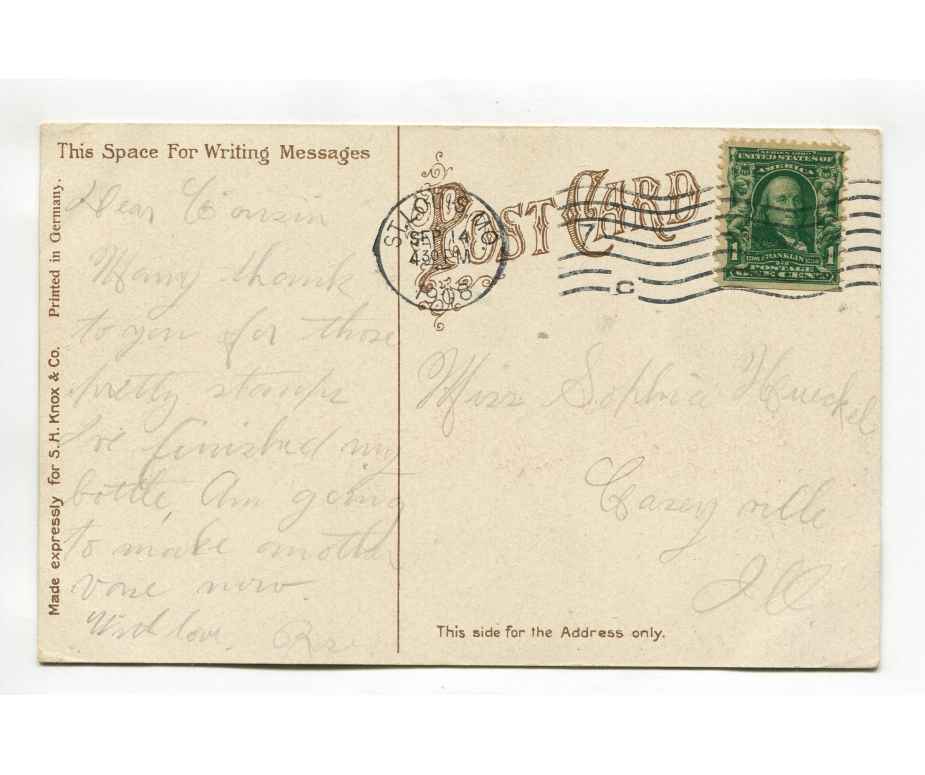 This Space For Writing Messages
Printed in Germany.
Made expressly for S.H. Knox & Co.
Dear Cousin
Many thank
to you for those
pretty stamps
I've finished my
bottle, Am going
to make another
vase now.
With love.
POST CARD
ST. LOUIS MO.
SEP 14
430 PM
1908
C
SERIES 1902
UNITED STATES OF
AMERICA
FRANKLIN
POSTAGE
1 ONE CENT 1
Miss Sophia
Caseyville
Ill
This side for the Address only.